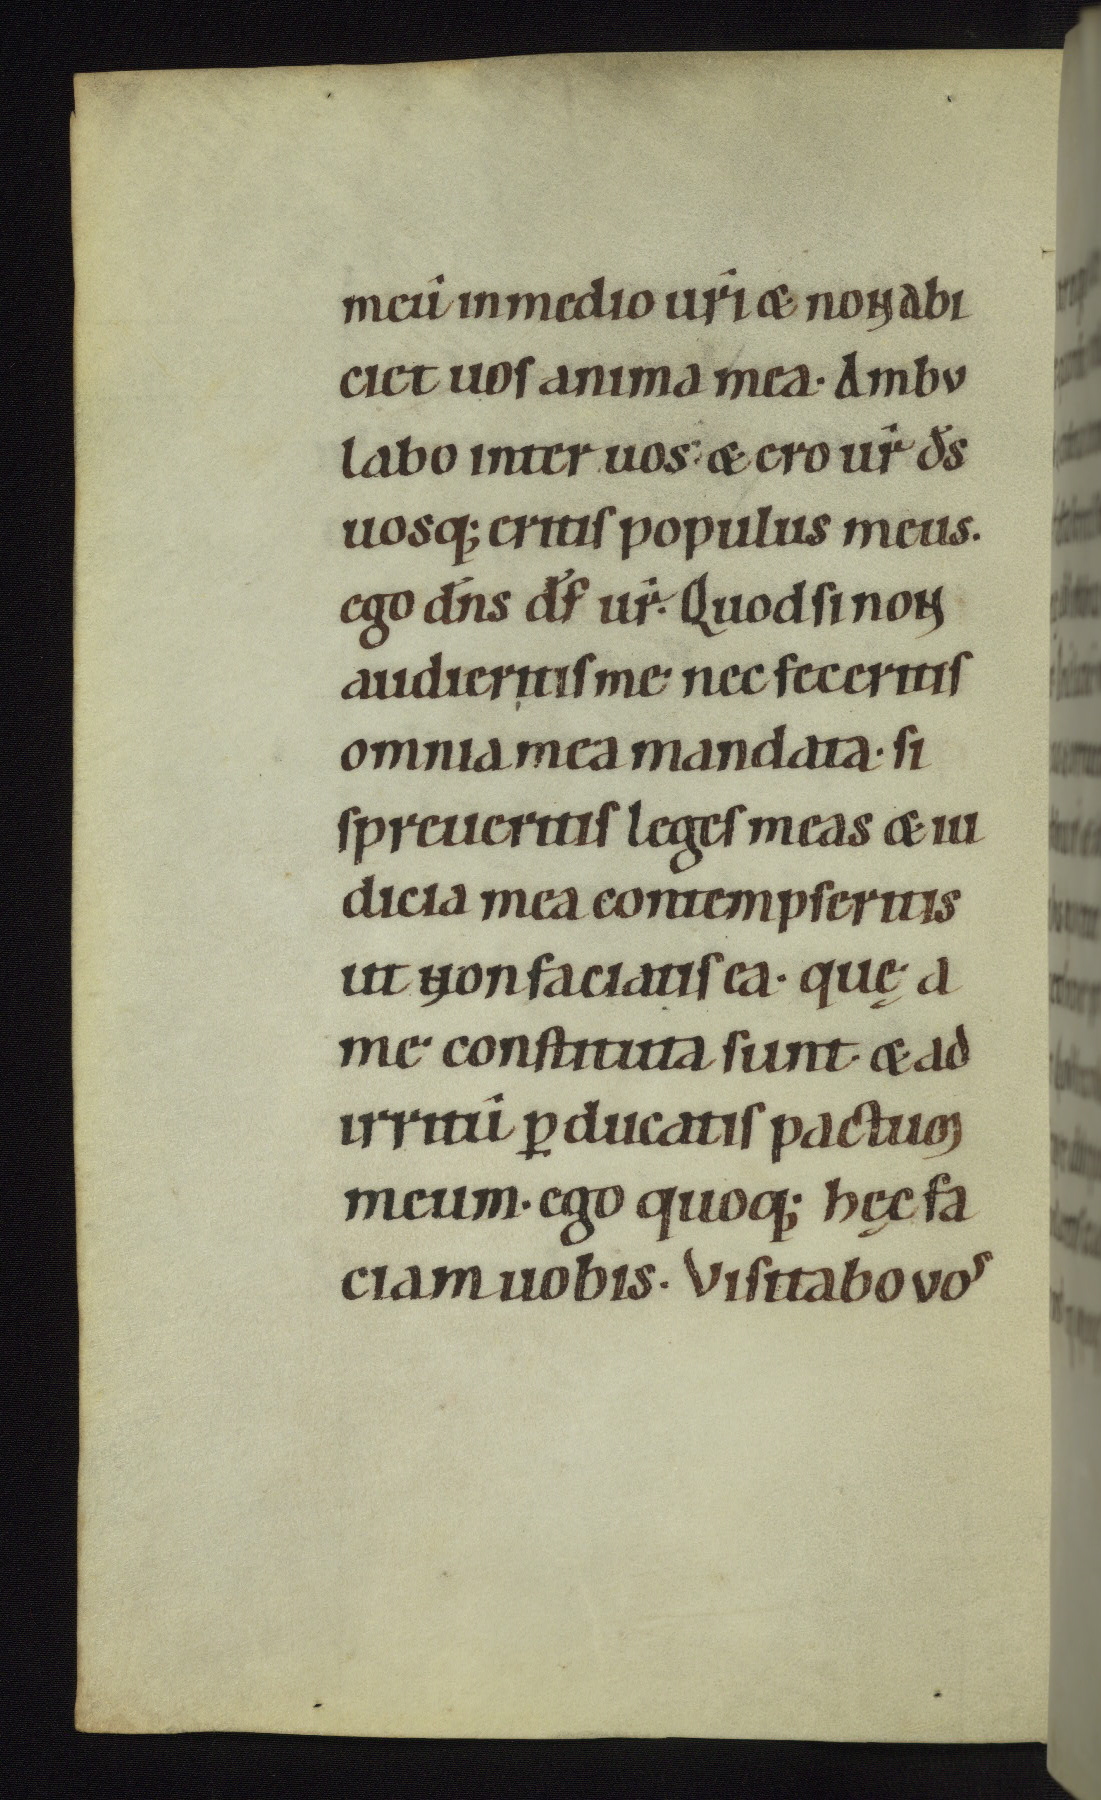 meū in medio ur̄i & non abi
ciet uoſ anima mea · Ambv
labo inter uos · & ero ur̄ d̄s
uosq; eritiſ populus meus.
ego dn̄s dſ̄ ur̄. Quod ſi non
audieritiſ me · nec feceritiſ
omnia mea mandata · ſi
ſpreueritiſ legeſ meas & iu
dicia mea contempſeritis
ut non faciatiſ ea · quę a
me conſtituta ſunt · & ad
irritū ꝑducatiſ pactum
meum · ego quoq; hęc fa
ciam uobis · Viſitabo voˢ